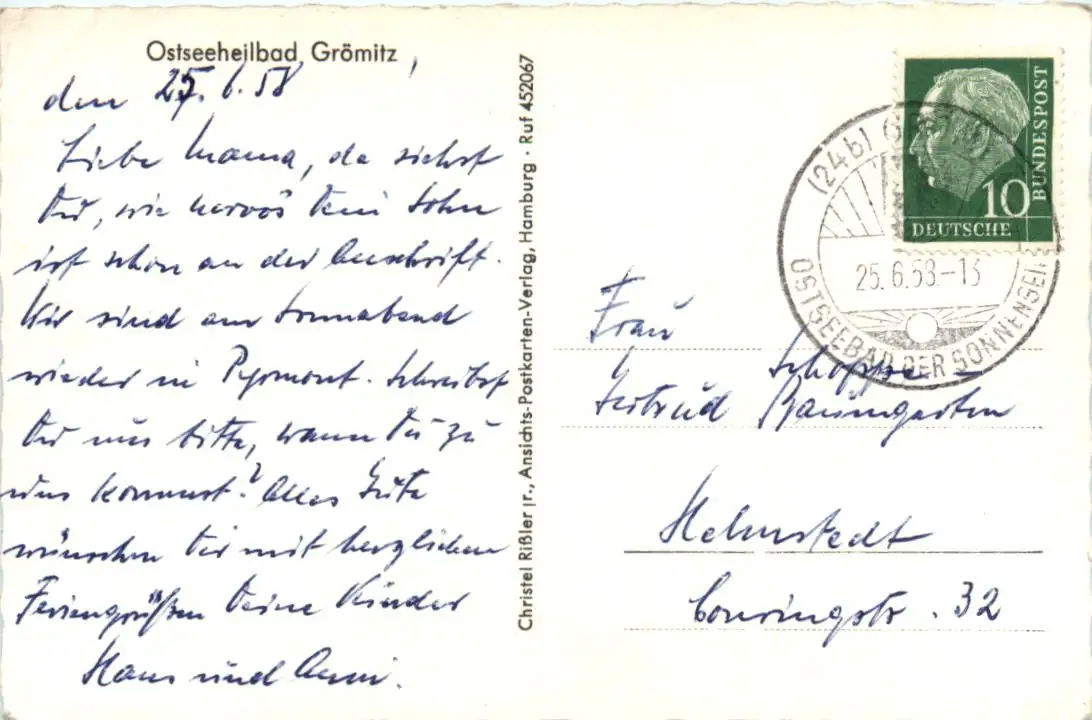 Ostseeheilbad, Grömitz
den 25.6.58
Liebe Mama, da siehst
Du, wie nervös Dein Sohn
ist schon an der Anschrift.
Wir sind am Sonnabend
wieder in Pyrmont. Schreibst
Du uns bitte, wann Du zu
uns kommst? Alles Gute
wünschen Dir mit herzlichen
Feriengrüßen Deine Kinder
Hans und Anni.
Christel Rißler jr., Ansichts-Postkarten-Verlag, Hamburg · Ruf 452067
10
DEUTSCHE
BUNDESPOST
(24b)
25.6.58.-13
OSTSEEBAD DER SONNENSEI
Frau
Gertrud Baumgarten
Helmstedt
Conringstr. 32